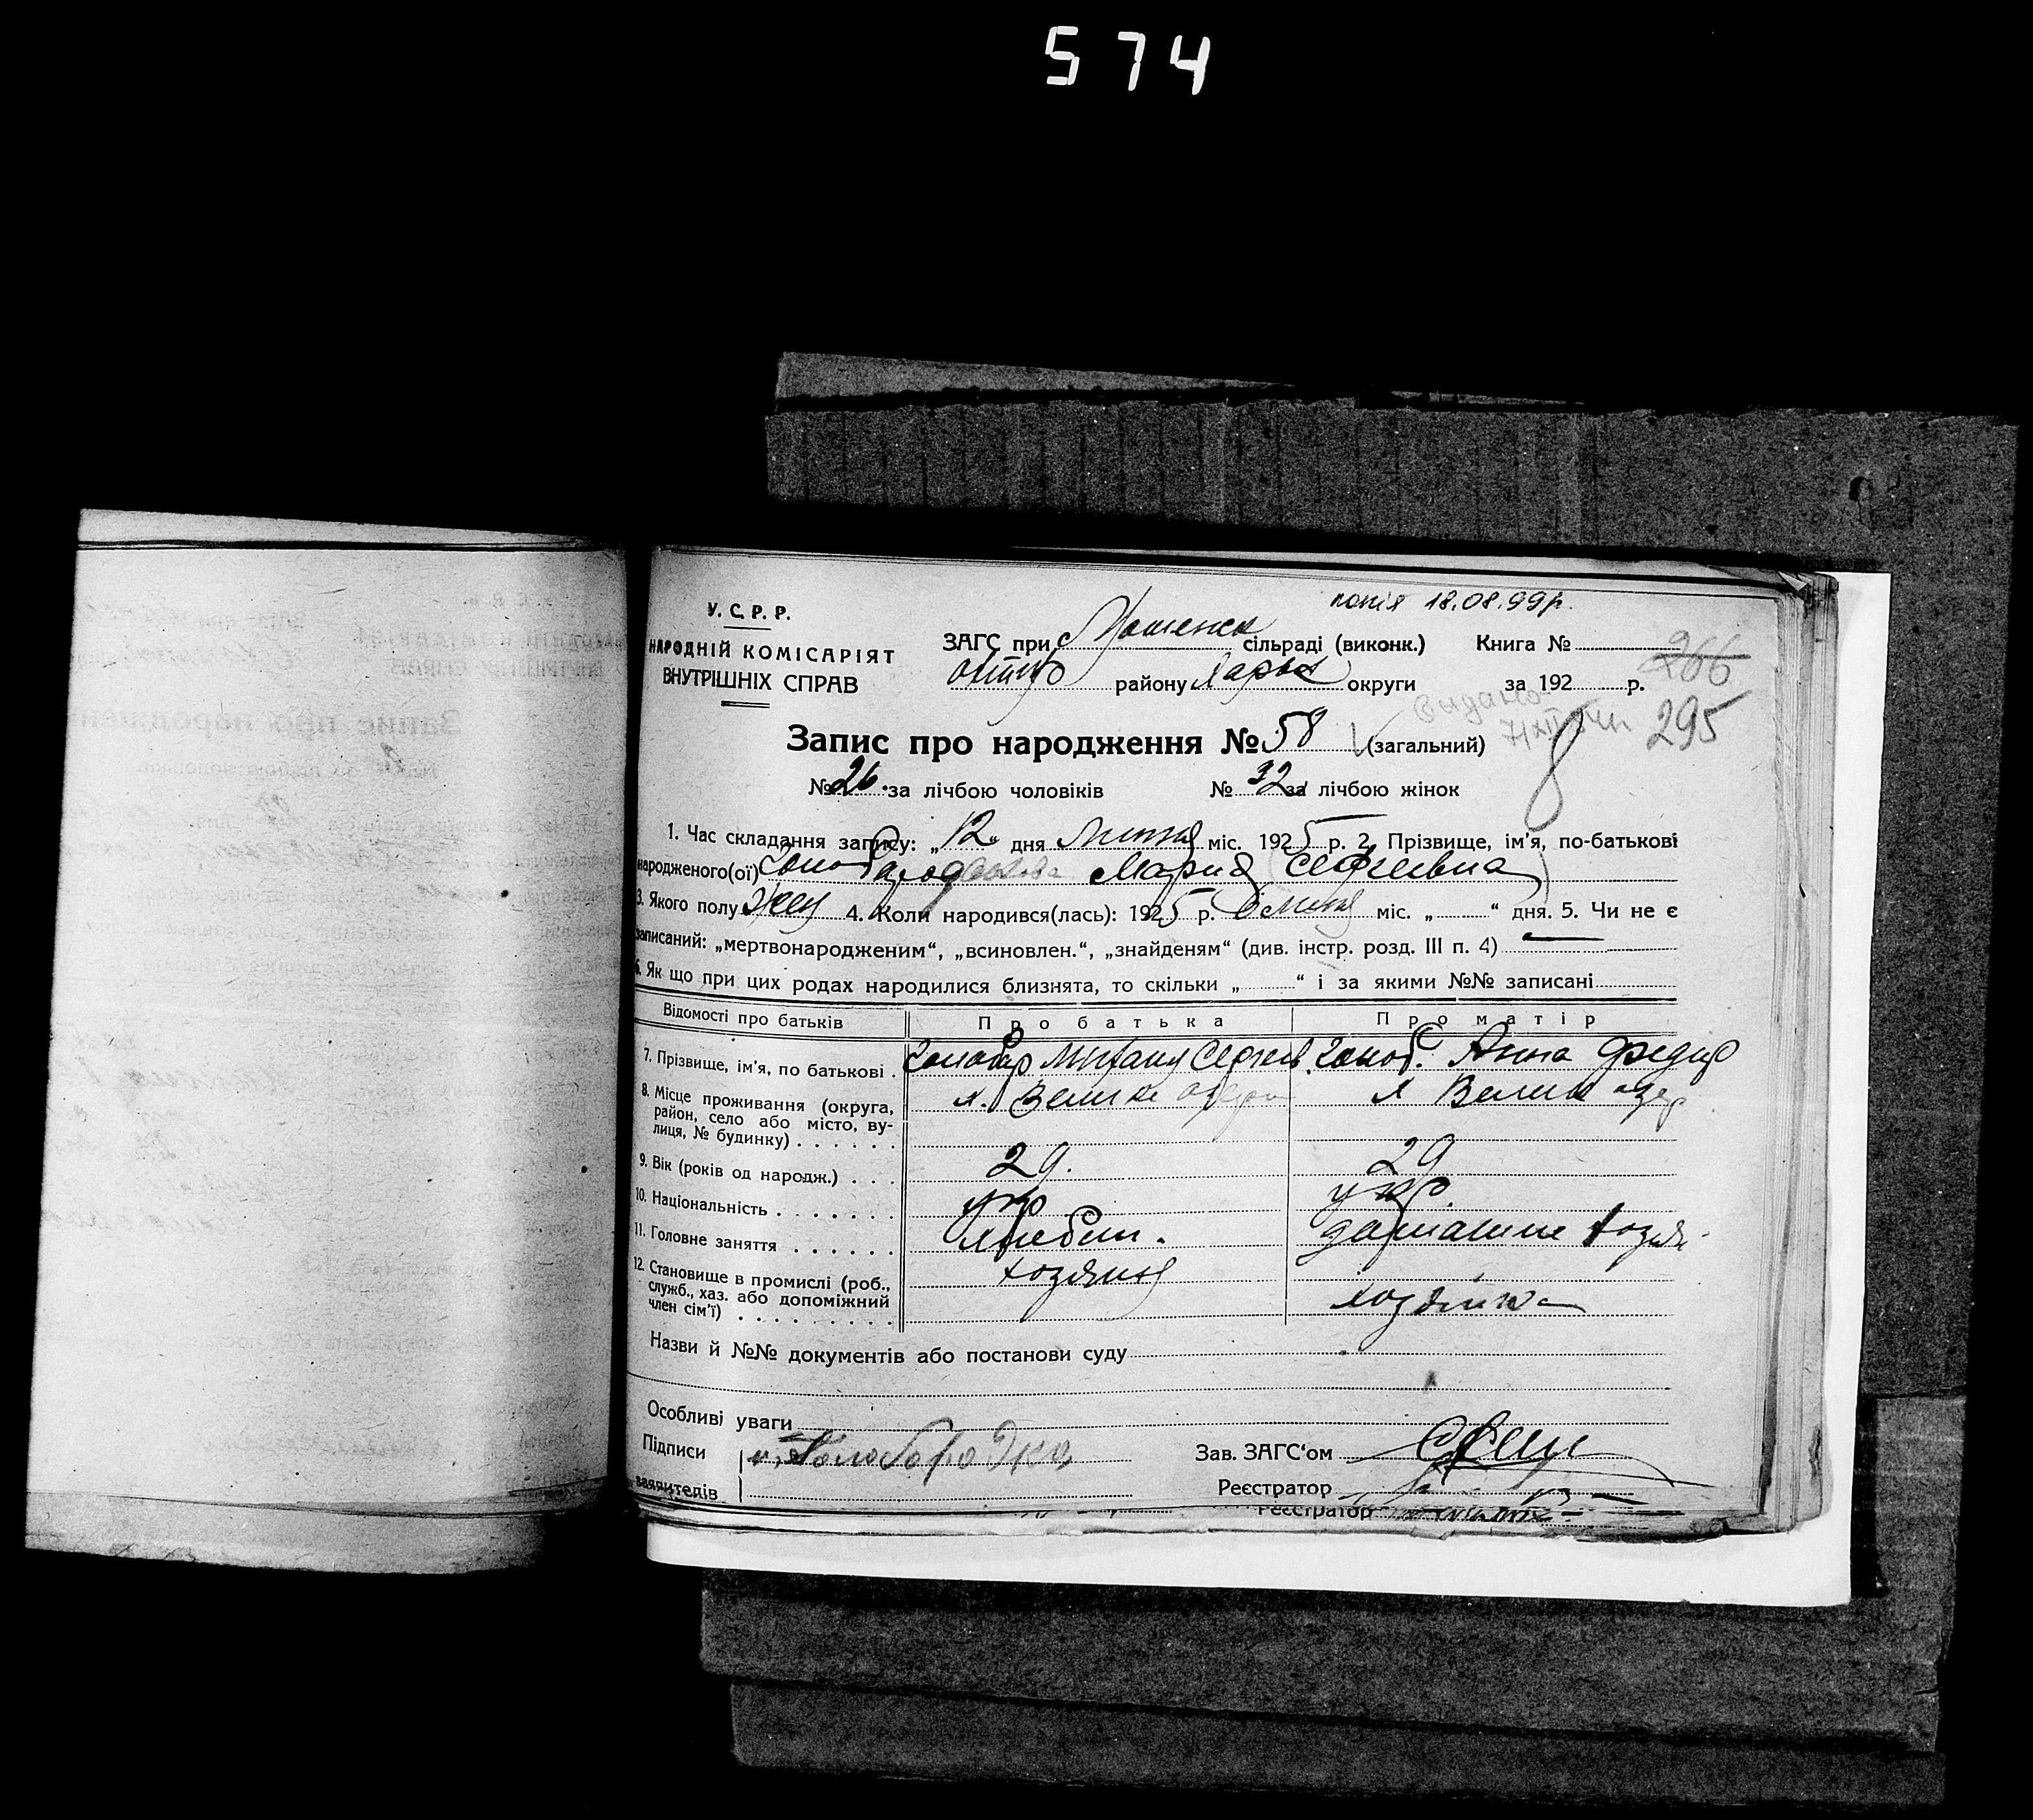 574
копія 18.08.99р.
У. С. Р. Р.
НАРОДНІЙ КОМІСАРІЯТ
ВНУТРІШНІХ СПРАВ
ЗАГС при сільраді (виконк.) Книга №
району Харьк округи за 192 р.
266
Видано
295
Запис про народження № 58 (загальний)
8
№ 26. за лічбою чоловіків № 32 за лічбою жінок
1. Час складання запису: „12“ дня Лютня міс. 1925 р. 2. Прізвище, ім'я, по-батькові
народженого(ої) Мария
3. Якого полу жен 4. Коли народився(лась): 1925 р. 6 лютня міс. „ “ дня. 5. Чи не є
записаний: „мертвонародженим“, „всиновлен.“, „знайденям“ (див. інстр. розд. III п. 4) —
6. Як що при цих родах народилися близнята, то скільки „ “ і за якими №№ записані
Відомості про батьків Про батька Про матір
7. Прізвище, ім'я, по батькові . Голобор Сергеев. Голоб. Анна Федор
8. Місце проживання (округа, район, село або місто, вулиця, № будинку) . . . . . . х. Велике озеро х Велик озер
9. Вік (років од народж.) . . . 29. 29
10. Національність . . . . . . . укр укр
11. Головне заняття . . . . . . хлебоп. домашне хозяй-
12. Становище в промислі (роб., служб., хаз. або допоміжний член сім'ї) . . . . . . . . . хозяин хозяйка
Назви й №№ документів або постанови суду
Особливі уваги
Підписи Голобородко Зав. ЗАГС'ом
заявителів Реєстратор
Реєстратор